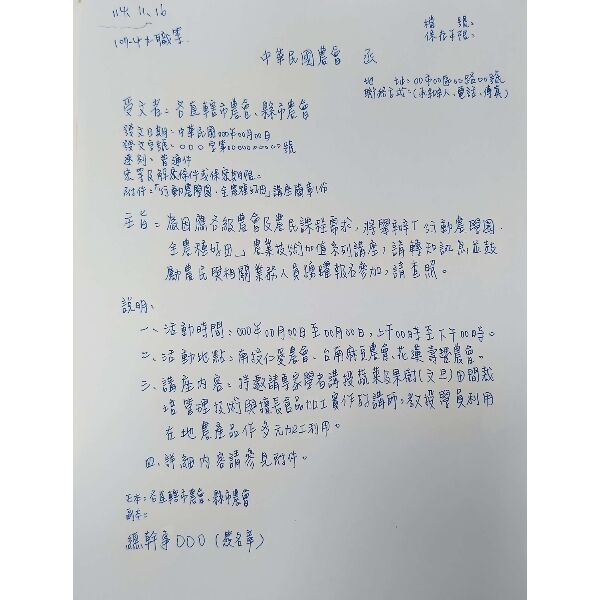 114.11.16
107-4-2職等
檔 號：
保存年限：
中華民國農會 函
地 址：00市00區00路00號
聯絡方式：(承辦人、電話、傳真)
受文者：各直轄市農會、縣市農會
發文日期：中華民國000年00月00日
發文字號：000字第0000000000號
速別：普通件
密等及解密條件或保密期限：
附件：「行動農學園．全農種好田」講座簡章1份
主旨：為因應各級農會及農民課程需求，將舉辦「行動農學園．
全農種好田」農業技術加值系列講座，請轉知訊息並鼓
勵農民與相關業務人員踴躍報名參加，請查照。
說明：
一、活動時間：000年00月00日至00月00日，上午00時至下午00時。
二、活動地點：南投仁愛農會、台南麻豆農會、花蓮壽豐農會。
三、講座內容：特邀請專家學者講授蔬菜及果樹(文旦)田間栽
培管理技術與擅長食品加工實作的講師，教授學員利用
在地農產品作多元加工利用。
四、詳細內容請參見附件。
正本：各直轄市農會、縣市農會
副本：
總幹事000(簽名章)